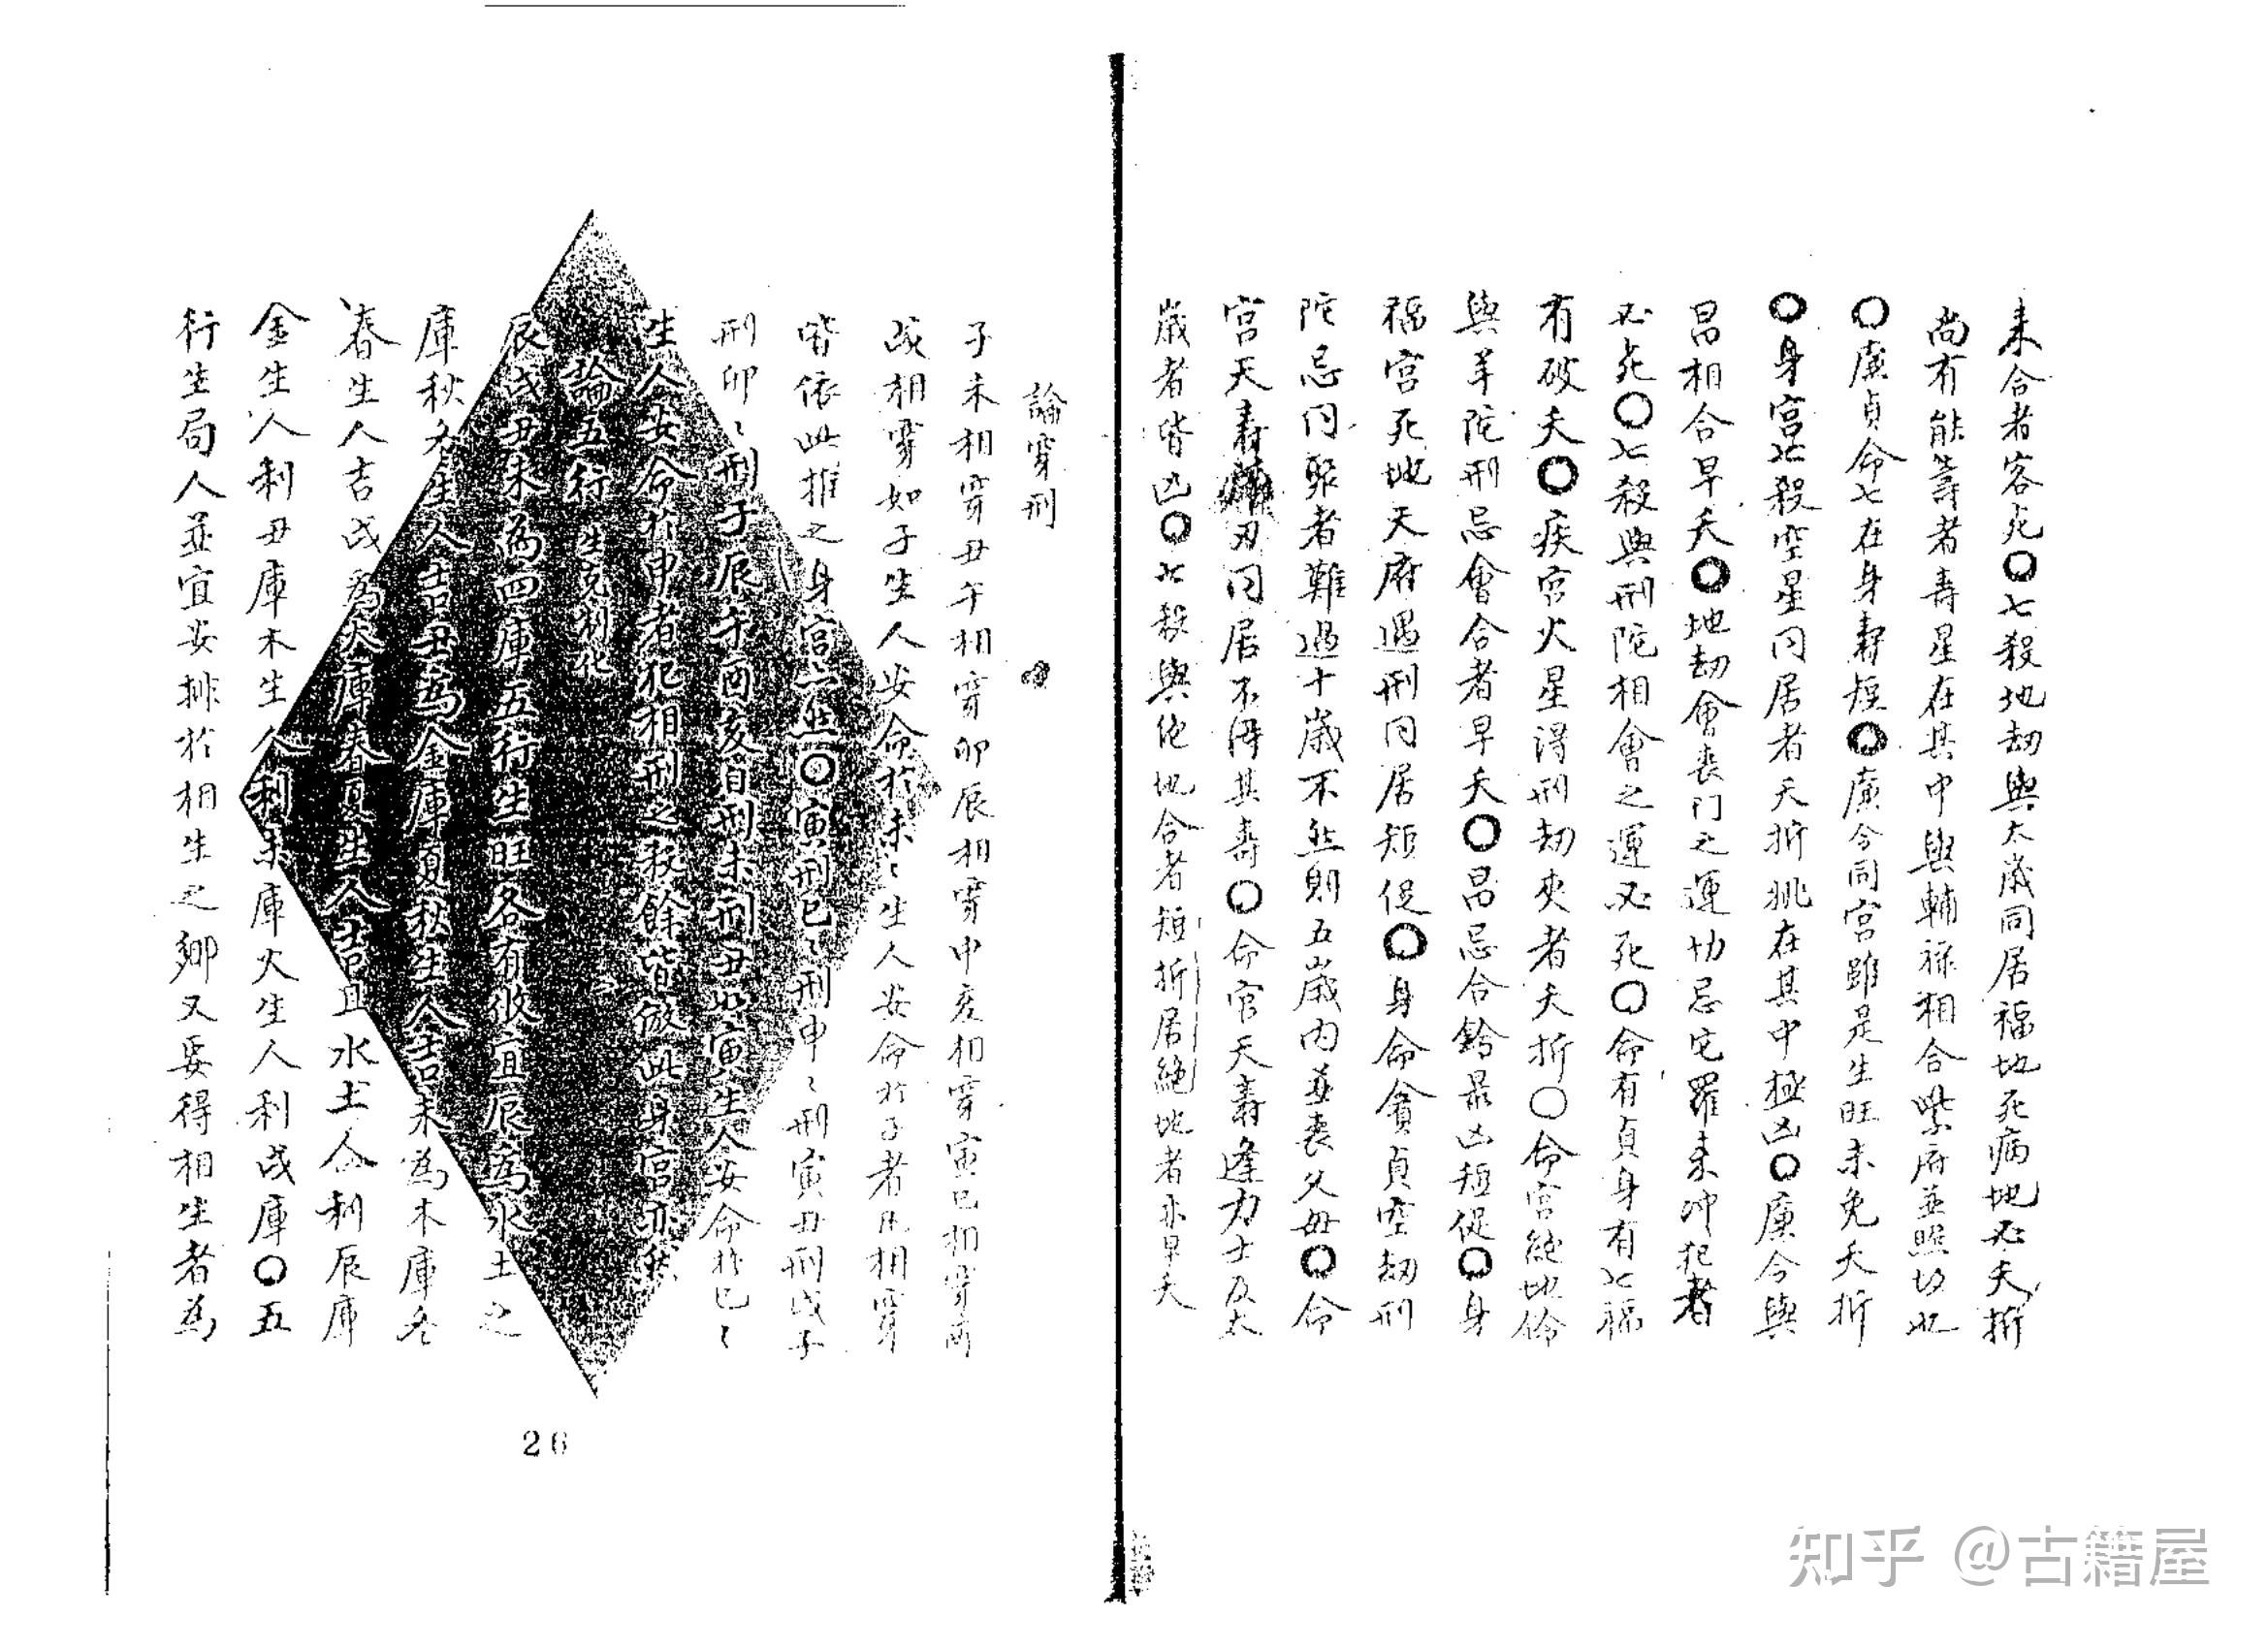 來合者客死〇七殺地劫與太歲同居福地死病地必夭折
尚有能壽者壽星在其中與輔祿相合紫府並照切忌
〇廉貞命七在身壽短〇廉令同宮雖是生旺未免夭折
〇身宮七殺空星同居者夭折姚在其中極凶〇廉令與
昌相合早夭〇地劫會喪門之運切忌宅羅來冲犯者
必死〇七殺與刑陀相會之運必死〇命有貞身有七福
有破夭〇疾宮火星得刑劫夾者夭折〇命宮絕地伶
與羊陀刑忌會合者早夭〇昌忌合鈴最凶短促〇身
福宮死地天府遇刑同居短促〇身命貪貞空劫刑
陀忌同聚者難過十歲不然則五歲內並喪父母〇命
宮天壽刃同居不得其壽〇命宮天壽逢力士及太
歲者皆凶〇七殺與陀地合者短折居絕地者亦早夭
論穿刑
子未相穿丑午相穿卯辰相穿申亥相穿寅巳相穿酉
戌相穿如子生人安命於未〻生人安命於子者凡相穿
皆依此推之身宮亦然〇寅刑巳〻刑申〻刑寅丑刑戌子
刑卯〻刑子辰午酉亥自刑未刑丑如寅生人安命於巳〻
生人安命於申者犯相刑之殺餘皆倣此身宮亦然
論五行生克制化
辰戌丑未為四庫五行生旺各有攸宜辰為水土之
庫秋冬生人吉丑為金庫夏秋生人吉未為木庫冬
春生人吉戌為火庫春夏生人吉且水土人利辰庫
金生人利丑庫木生人利未庫火生人利戌庫〇五
行生局人並宜安排於相生之鄉又要得相生者為
26
知乎 @古籍屋